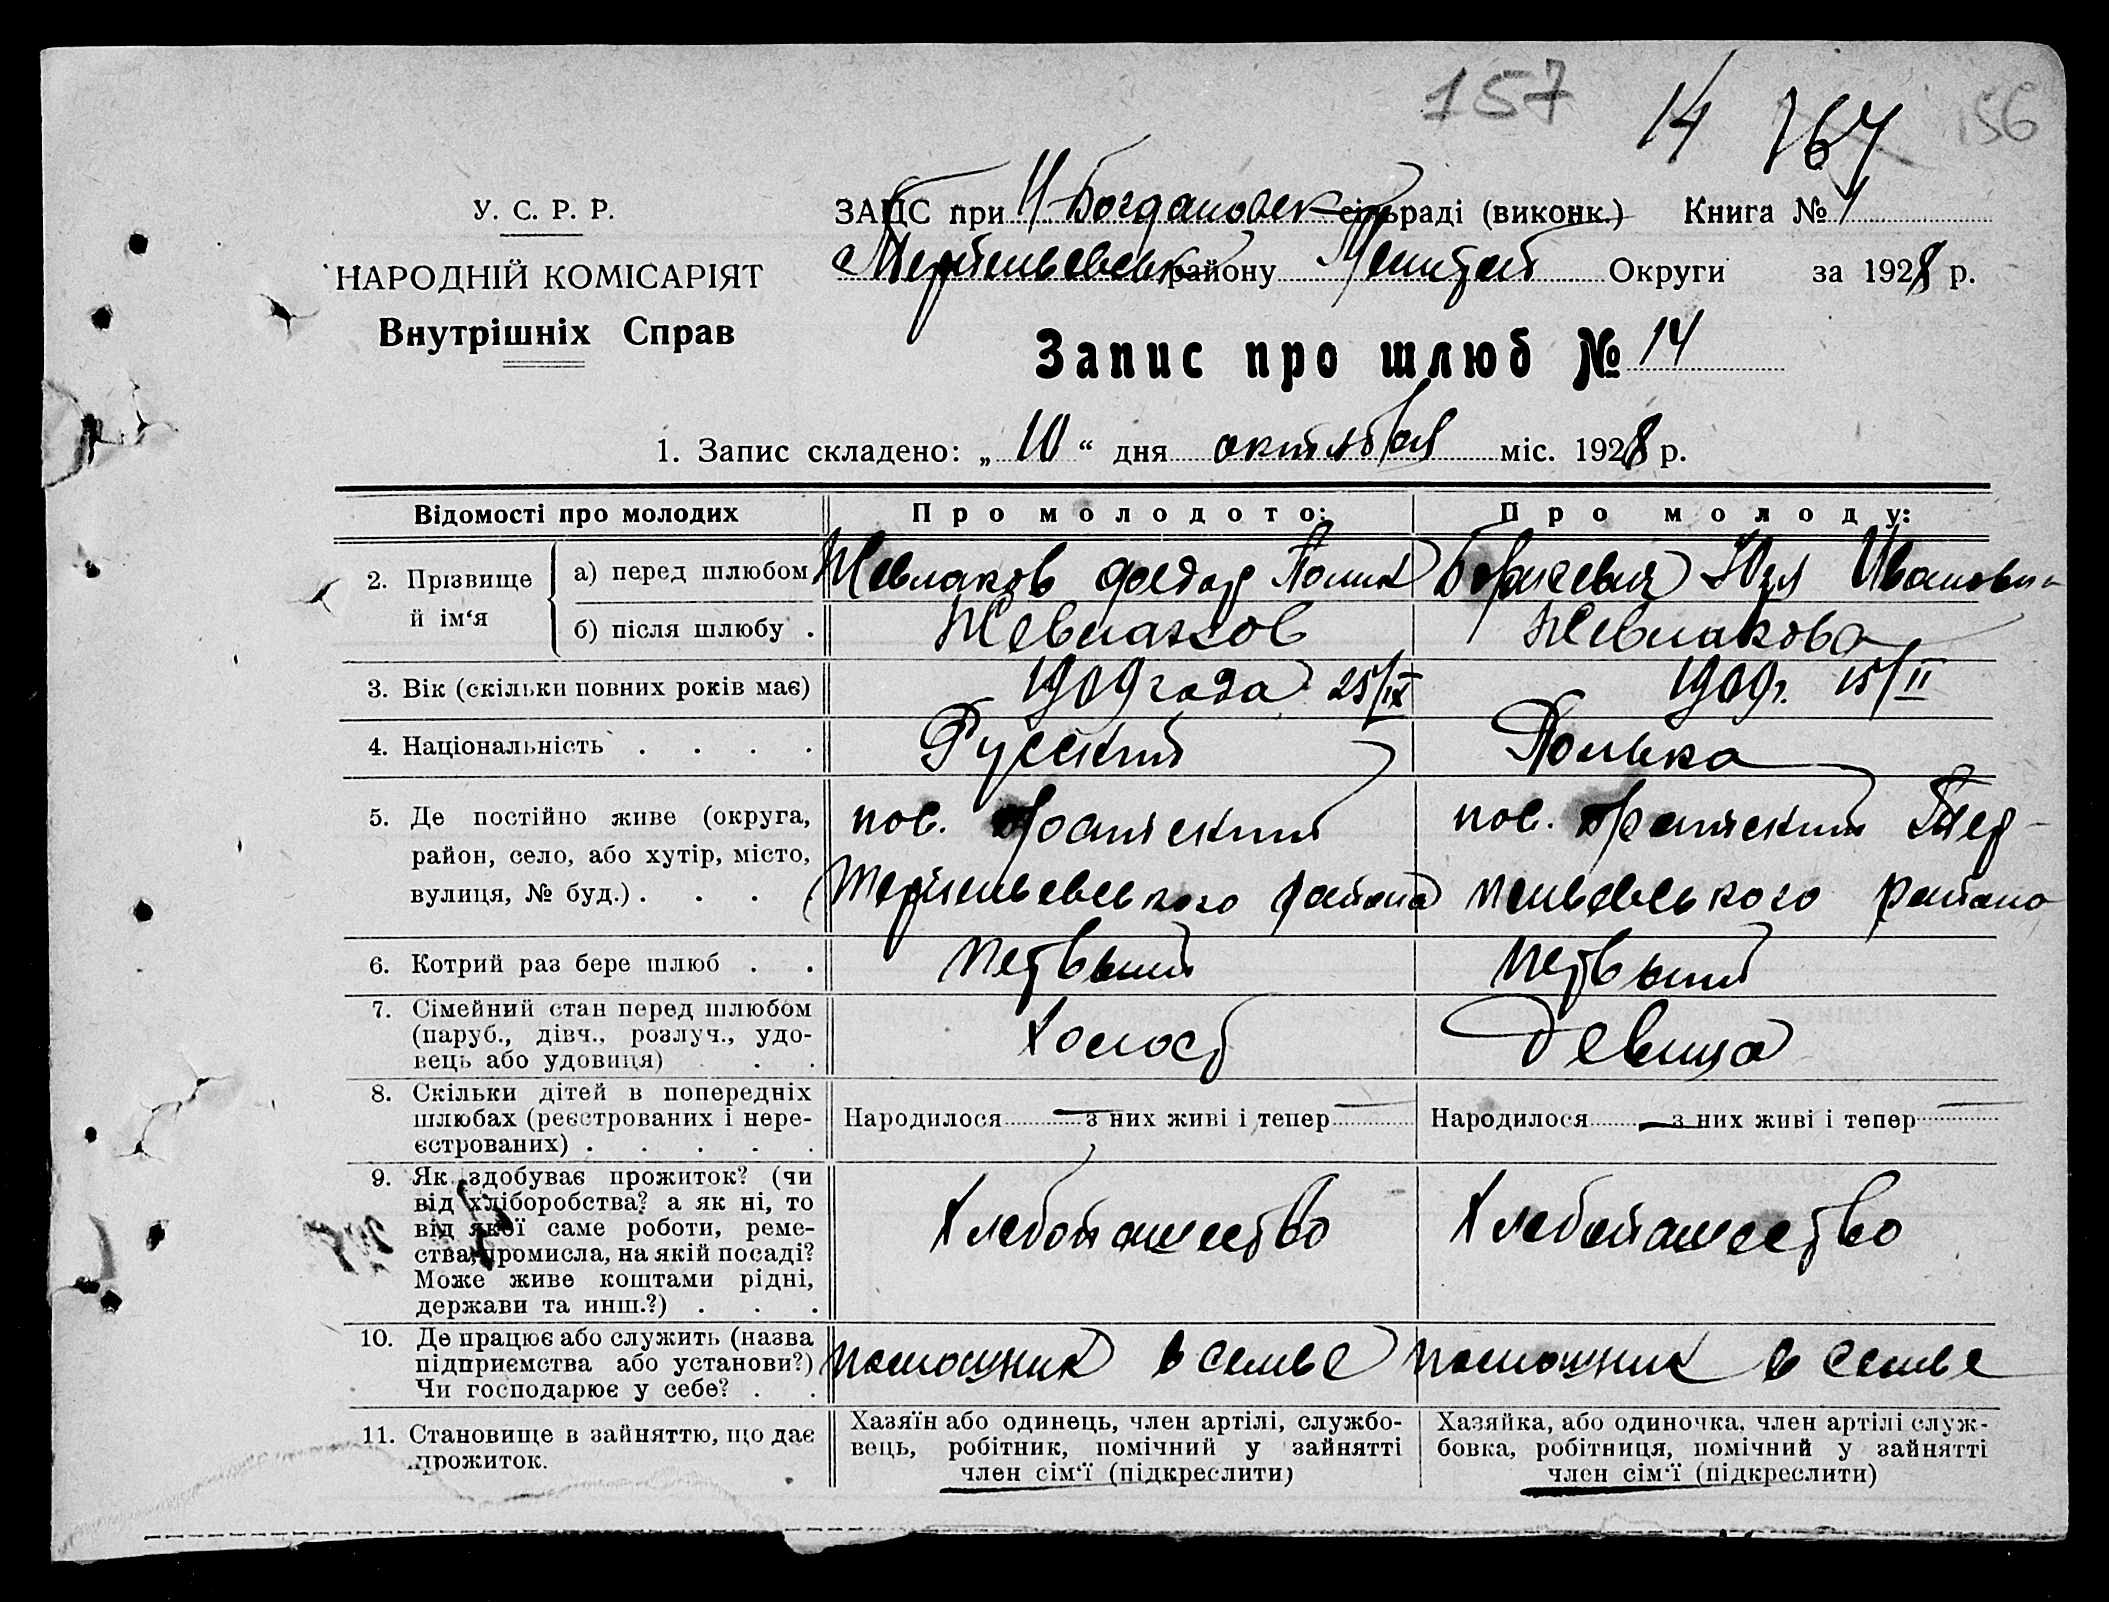 157 14 164 156
У. С. Р. Р.
НАРОДНІЙ КОМІСАРІЯТ
Внутрішніх Справ
ЗАЦС при Н-Богдановск сільраді (виконк.) Книга № 1
району Округи за 1928 р.
Запис про шлюб № 14
1. Запис складено: „ 10 “ дня октября міс. 1928 р.
Відомості про молодих
Про молодото:
Про молоду:
2. Прізвище й ім‘я
а) перед шлюбом
Жевлаков Федор
Юзя Ивановн
б) після шлюбу .
Жевлаков
Жевлакова
3. Вік (скільки повних років має)
1909 года 25/IX
1909 г. 15/II
4. Національність . . . .
Русский
Полька
5. Де постійно живе (округа,
район, село, або хутір, місто,
вулиця, № буд.) . . .
пос. Братский
Терпеньевського района
пос. Братский Тер-
пеньевського района
6. Котрий раз бере шлюб . .
первый
первый
7. Сімейний стан перед шлюбом
(паруб., дівч., розлуч., удо-
вець або удовиця) . . .
Холост
Девица
8. Скільки дітей в попередніх
шлюбах (реєстрованих і нере-
єстрованих) . . . . .
Народилося — з них живі і тепер —
Народилося — з них живі і тепер —
9. Як здобуває прожиток? (чи
від хліборобства? а як ні, то
від якої саме роботи, реме-
ства, промисла, на якій посаді?
Може живе коштами рідні,
держави та инш.?) . . .
Хлебопашество
Хлебопашество
10. Де працює або служить (назва
підприємства або установи?)
Чи господарює у себе? . .
помошник в семье
помошник в семье
11. Становище в зайняттю, що дає
прожиток.
Хазяїн або одинець, член артілі, службо-
вець, робітник, помічний у зайнятті
член сім‘ї (підкреслити)
Хазяйка, або одиночка, член артілі служ-
бовка, робітниця, помічний у зайнятті
член сім‘ї (підкреслити)